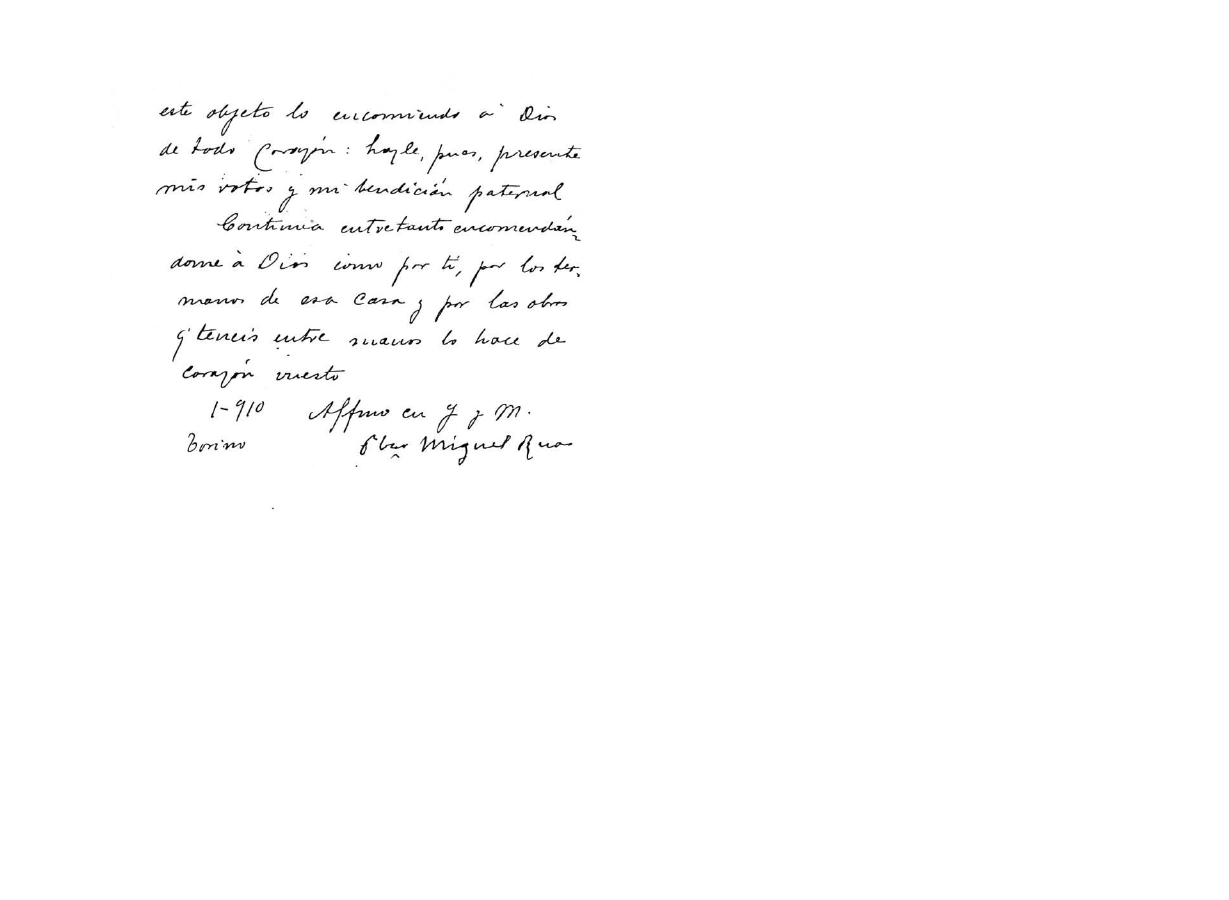 este objeto lo encomiendo a Dios
de todo corazón: hazle, pues, presente
mis votos y mi bendición paternal
Continúa entretanto encomendán-
dome à Dios como por ti, por los her-
manos de esa Casa y por las obras
q' teneis entre manos lo hace de
corazón vuesto
1-910 Affmo en J y M.
Torino Pbro Miguel Rua